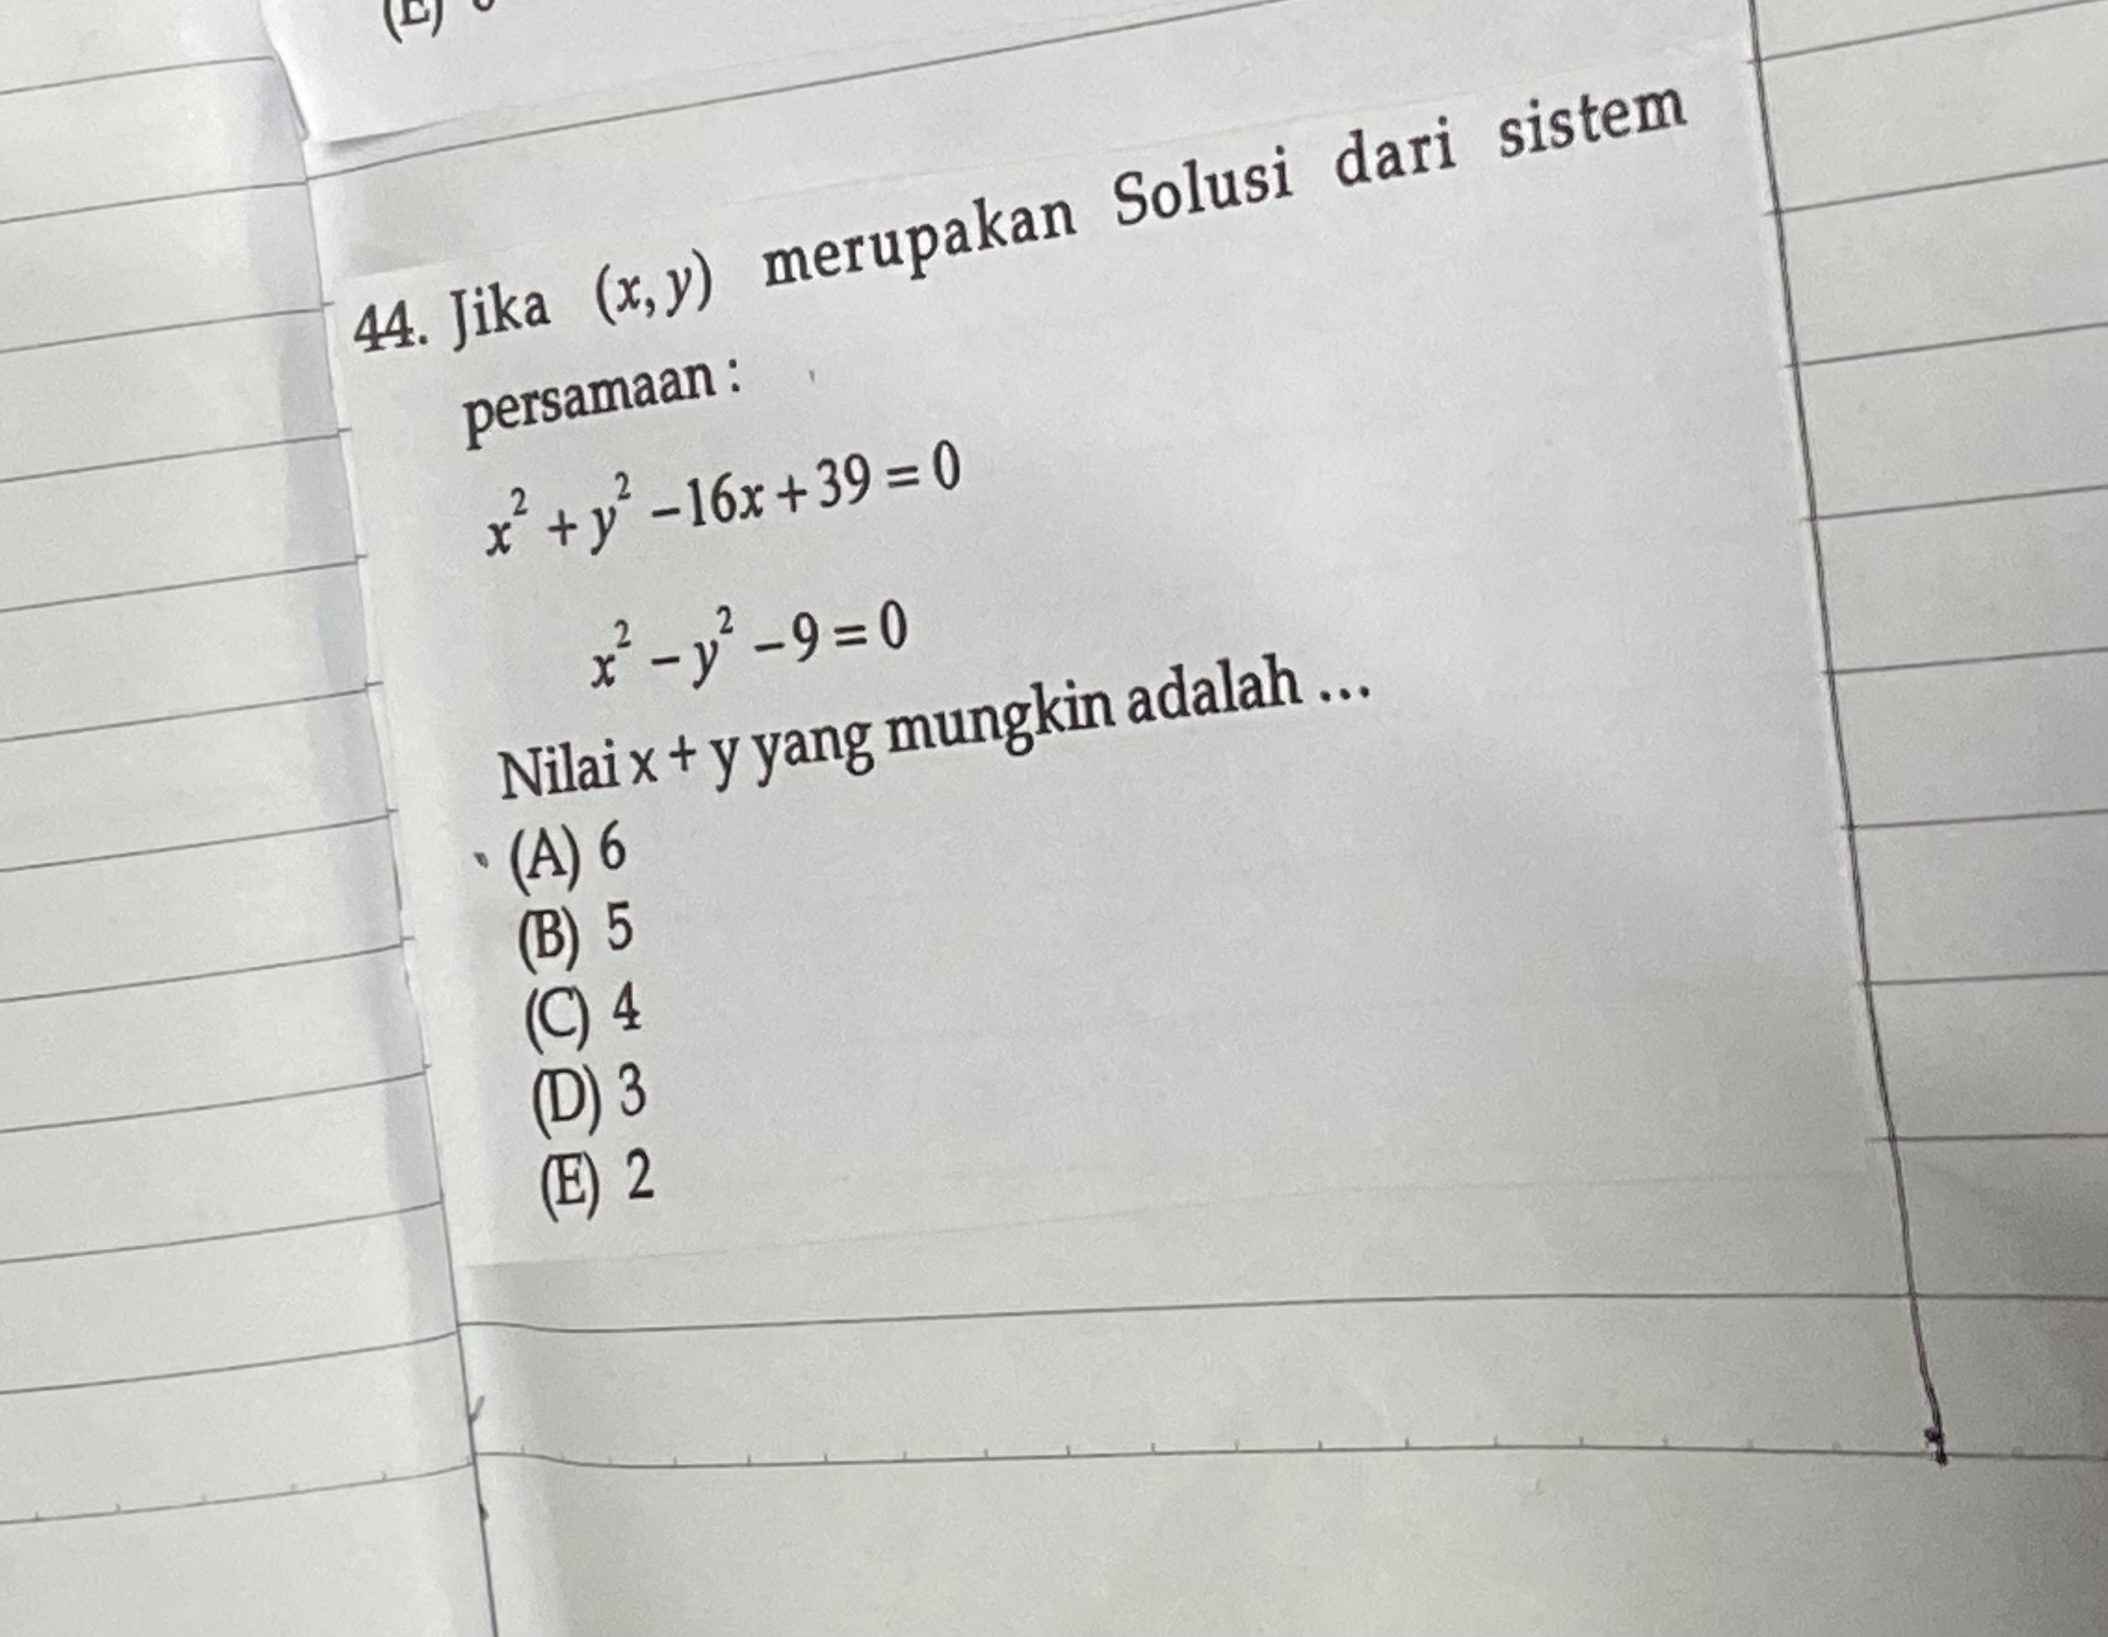 (E)
44. Jika (x, y) merupakan Solusi dari sistem
persamaan :
x² + y² − 16x + 39 = 0
x² − y² − 9 = 0
Nilai x + y yang mungkin adalah ...
(A) 6
(B) 5
(C) 4
(D) 3
(E) 2